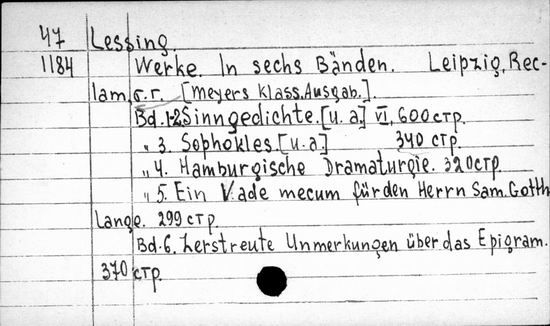 47 Lessing.
1184 Werke. In sechs Bänden. Leipzig, Rec-
lam, б.г. [Meyers klass. Ausgab.].
Bd. 1-2 Sinngedichte. [u. a.] VI, 600 стр.
„ 3. Sophokles. [u. a] 340 стр.
„ 4. Hamburgische Dramaturgie. 320 стр
„ 5. Ein Vade mecum für den Herrn Sam. Gotth
Lange. 299 стр
Bd. 6. Zerstreute Unmerkungen über das Epigram.
370 стр